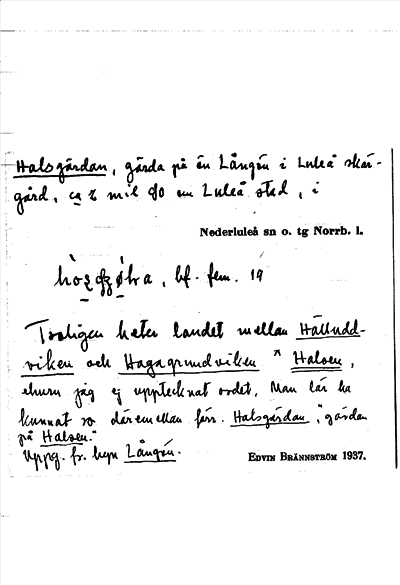 Halsgärdan, gärda på ön Långön i Luleå skär-
gård, ca 2 mil SO om Luleå stad, i
Nederluleå sn o. tg Norrb. l.
bf. fem. 19
Troligen heter landet mellan Hälludd-
viken och Hagagrundviken * Halsen,
ehuru jag ej upptecknat ordet. Man lär ha
kunnat ro däremellan förr. Halsgärdan, "gärdan
på Halsen."
Uppg. fr. byn Långön.
EDVIN BRÄNNSTRÖM 1937.